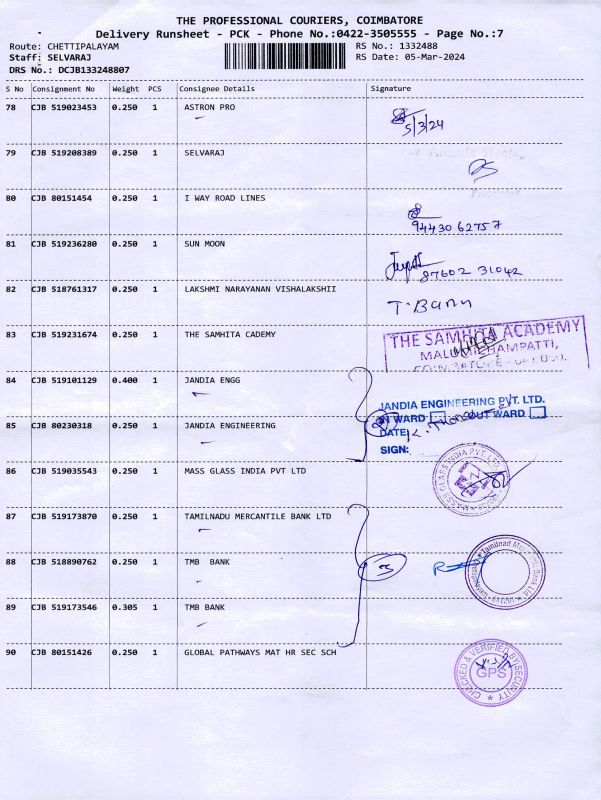 THE PROFESSIONAL COURIERS, COIMBATORE
Delivery Runsheet - PCK - Phone No.:0422-3505555 - Page No.:7
Route: CHETTIPALAYAM RS No.: 1332488
Staff: SELVARAJ RS Date: 05-Mar-2024
DRS No.: DCJB133248807
S No Consignment No Weight PCS Consignee Details Signature
78 CJB 519023453 0.250 1 ASTRON PRO
5/3/24
79 CJB 519208389 0.250 1 SELVARAJ
80 CJB 80151454 0.250 1 I WAY ROAD LINES
94430 62757
81 CJB 519236280 0.250 1 SUN MOON
87602 31042
82 CJB 518761317 0.250 1 LAKSHMI NARAYANAN VISHALAKSHII
T. Banu
83 CJB 519231674 0.250 1 THE SAMHITA CADEMY
THE SAMHITA ACADEMY
MALUMICHAMPATTI,
84 CJB 519101129 0.400 1 JANDIA ENGG
JANDIA ENGINEERING PVT. LTD.
IN WARD OUT WARD
85 CJB 80230318 0.250 1 JANDIA ENGINEERING
DATE
SIGN:
86 CJB 519035543 0.250 1 MASS GLASS INDIA PVT LTD
MASS GLASS INDIA PVT. LTD.
87 CJB 519173870 0.250 1 TAMILNADU MERCANTILE BANK LTD
88 CJB 518890762 0.250 1 TMB BANK
3
89 CJB 519173546 0.305 1 TMB BANK
90 CJB 80151426 0.250 1 GLOBAL PATHWAYS MAT HR SEC SCH
CHECKED & VERIFIED BY SECURITY
GPS